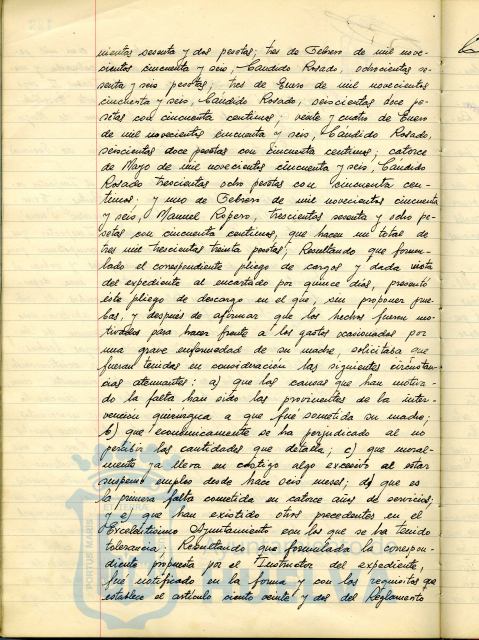 nientas sesenta y dos pesetas; tres de Febrero de mil nove-
cientos cincuenta y seis, Cándido Rosado, ochocientas se-
senta y seis pesetas; tres de Enero de mil novecientos
cincuenta y seis, Cándido Rosado, seiscientas doce pe-
setas con cincuenta centimos; veinte y cuatro de Enero
de mil novecientos cincuenta y seis, Cándido Rosado,
seiscientas doce pesetas con cincuenta centimos; catorce
de Mayo de mil novecientos cincuenta y seis, Cándido
Rosado trescientas ocho pesetas con cincuenta cen-
timos; y uno de Febrero de mil novecientos cincuenta
y seis, Manuel Ropero, trescientas sesenta y ocho pe-
setas con cincuenta centimos, que hacen un total de
tres mil trescientas treinta pesetas; Resultando que formu-
lado el correspondiente pliego de cargos y dada vista
del expediente al encartado por quince días, presentó
éste pliego de descargo en el que, sin proponer prue-
bas, y después de afirmar que los hechos fueron mo-
tivados para hacer frente a los gastos ocasionados por
una grave enfermedad de su madre, solicitaba que
fueran tenidas en consideración las siguientes circunstan-
cias atenuantes: a) que las causas que han motiva-
do la falta han sido las provinientes de la inter-
vención quirúrgica a que fué sometida su madre;
b) que económicamente se ha perjudicado al no
percibir las cantidades que detalla; c) que moral-
mente ya lleva en castigo algo excesivo al estar
suspenso empleo desde hace seis meses; d) que es
la primera falta cometida en catorce años de servicios;
y e) que han existido otros precedentes en el
Exceldítisimo Ayuntamiento con los que se ha tenido
tolerancia; Resultando que formulada la correspon-
diente propuesta por el Instructor del expediente,
fué notificado en la forma y con los requisitos que
establece el artículo ciento veinte y dos del Reglamento
PORTUS MARIS